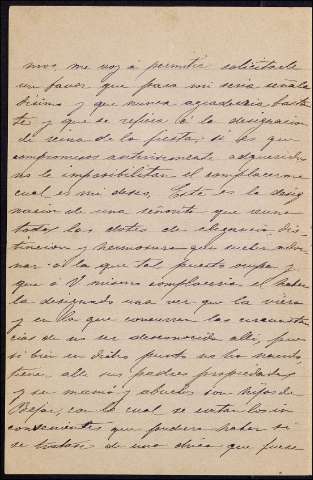 mos, me voy á permitir solicitarle
un favor que para mi seria señala
disimo y que nunca agradeceria bastan
te y que se refiere á la designacion
de reina de la fiesta, si es que
compromisos anteriormente adquiridos
no le imposibilitan el complacerme
cual es mi deseo. Este es la desig
nacion de una señorita que reune
todas las dotes de elegancia, dis
tincion y hermosura que suelen ador
nar á la que tal puesto ocupa y
que á V mismo complaceria el haber
la designado una vez que la viera
y en la que concurren las circunstan
cias de no ser desconocida alli, pues
si bien en dicho punto no ha nacido,
tiene alli sus padres propiedades
y su mamá y abuelos son hijos de
Bejar, con lo cual se evitan los in
convenientes que pudiera haber si
se tratase de una chica que fuese